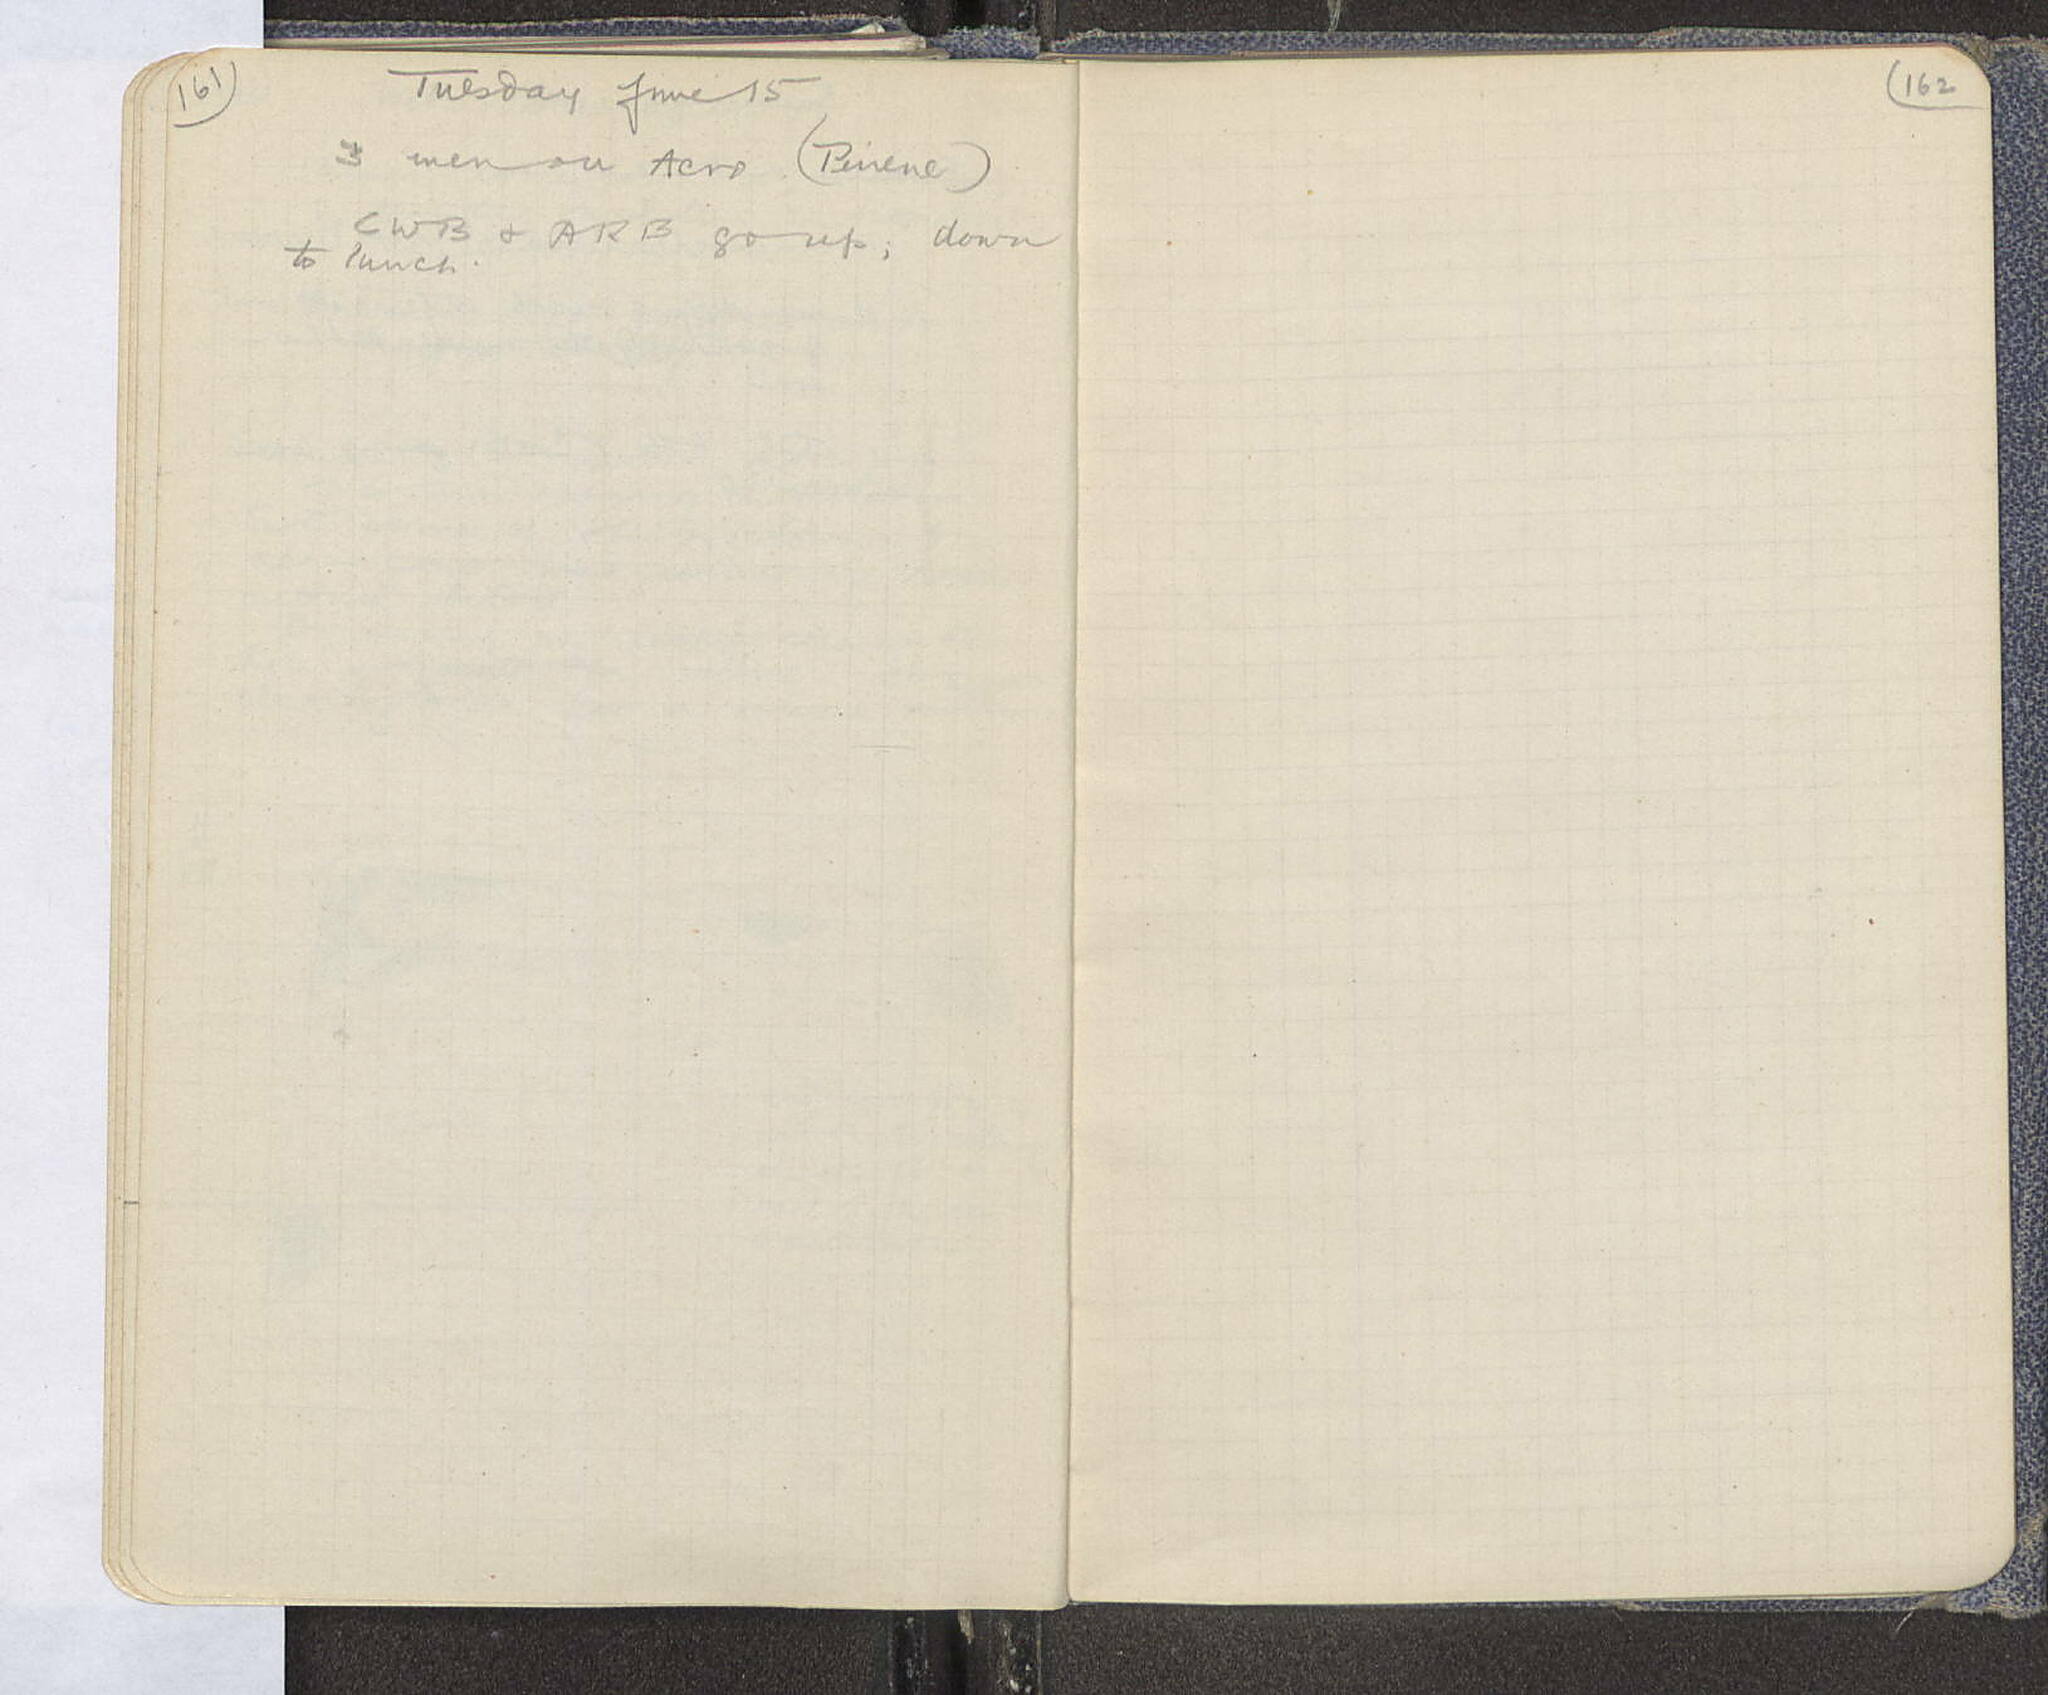 161
Tuesday June 15
3 men on Acro (Peirene)
CWB & ARB go up; down
to lunch.
162